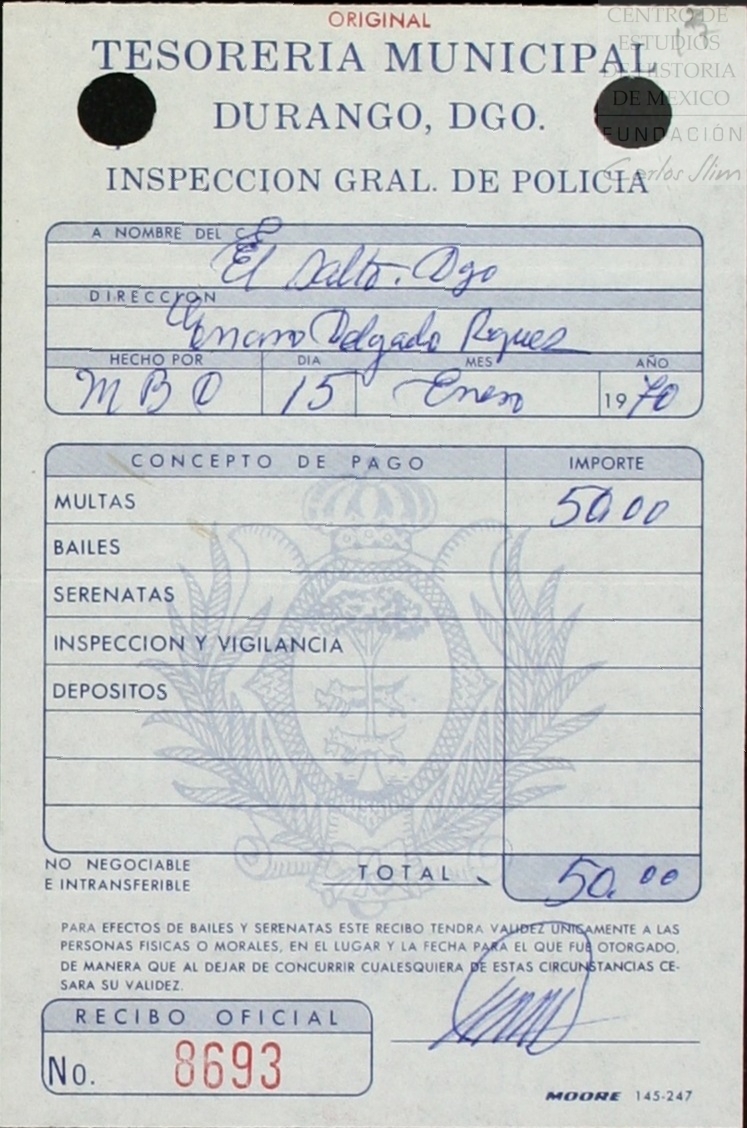 ORIGINAL
TESORERIA MUNICIPAL
DURANGO, DGO.
INSPECCION GRAL. DE POLICIA
CENTRO DE
ESTUDIOS
DE HISTORIA
DE MEXICO
FUNDACIÓN
Carlos Slim
A NOMBRE DEL C.
El Salto. Dgo
DIRECCION
Delgado
HECHO POR DIA MES AÑO
M B O 15 Enero 1970
CONCEPTO DE PAGO IMPORTE
MULTAS 50.00
BAILES
SERENATAS
INSPECCION Y VIGILANCIA
DEPOSITOS
NO NEGOCIABLE
E INTRANSFERIBLE
TOTAL 50.00
PARA EFECTOS DE BAILES Y SERENATAS ESTE RECIBO TENDRA VALIDEZ UNICAMENTE A LAS
PERSONAS FISICAS O MORALES, EN EL LUGAR Y LA FECHA PARA EL QUE FUE OTORGADO,
DE MANERA QUE AL DEJAR DE CONCURRIR CUALESQUIERA DE ESTAS CIRCUNSTANCIAS CE-
SARA SU VALIDEZ.
RECIBO OFICIAL
No. 8693
MOORE 145-247